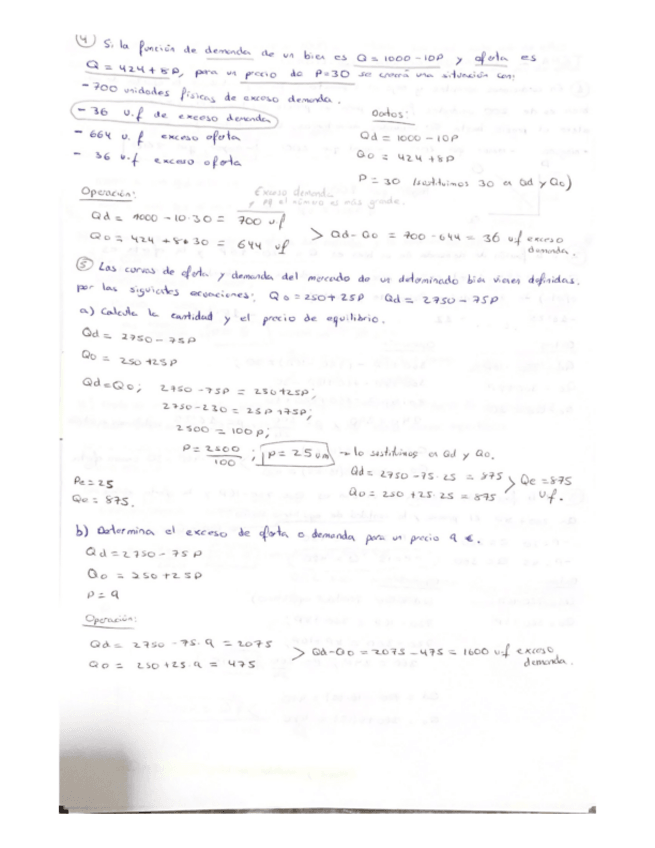 4 Si la función de demanda de un bien es Q = 1000 - 10P y oferta es
Q = 424 + 8P, para un precio de P=30 se creará una situación con:
- 700 unidades físicas de exceso demanda.
- 36 u.f de exceso demanda
- 664 u.f exceso oferta
- 36 u.f exceso oferta
Datos:
Qd = 1000 - 10P
Qo = 424 + 8P
P = 30 (sustituimos 30 en Qd y Qo)
Operación:
Exceso demanda
pq el número es más grande.
Qd = 1000 - 10·30 = 700 u.f
Qo = 424 + 8·30 = 644 uf
> Qd - Qo = 700 - 644 = 36 u.f exceso
demanda.
5 Las curvas de oferta y demanda del mercado de un determinado bien vienen definidas
por las siguientes ecuaciones: Qo = 250 + 25P Qd = 2750 - 75P
a) Calcula la cantidad y el precio de equilibrio.
Qd = 2750 - 75P
Qo = 250 + 25P
Qd = Qo; 2750 - 75P = 250 + 25P;
2750 - 250 = 25P + 75P;
2500 = 100P;
P = 2500/100 ; P = 25 um → lo sustituimos en Qd y Qo.
Qd = 2750 - 75·25 = 875
Qo = 250 + 25·25 = 875
> Qe = 875
u.f.
Pe = 25
Qe = 875.
b) Determina el exceso de oferta o demanda para un precio 9 €.
Qd = 2750 - 75P
Qo = 250 + 25P
P = 9
Operación:
Qd = 2750 - 75·9 = 2075
Qo = 250 + 25·9 = 475
> Qd - Qo = 2075 - 475 = 1600 u.f exceso
demanda.